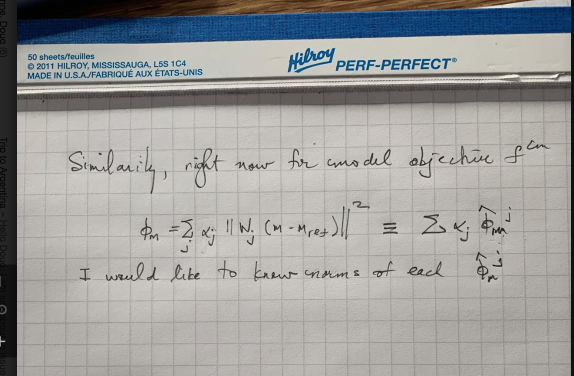 50 sheets/feuilles
© 2011 HILROY, MISSISSAUGA, L5S 1C4
MADE IN U.S.A./FABRIQUÉ AUX ÉTATS-UNIS
Hilroy PERF-PERFECT®
Similarily, right now for model objective fcn
ϕm = Σj αj ||Wj (m - mref)||² ≡ Σ αj ϕ̂mʲ
I would like to know norms of each ϕ̂mʲ
Trip to Argentina